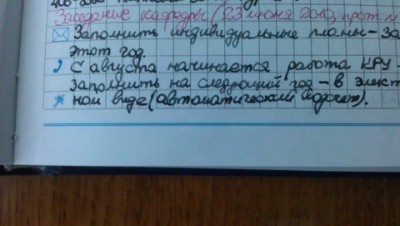 Заседание кафедры (23 июня 2010, прот. №
Заполнить индивидуальные планы - за
этот год.
С августа начинается работа КРУ -
заполнить на следующий год - в элект
ном виде (автоматический подсчет).